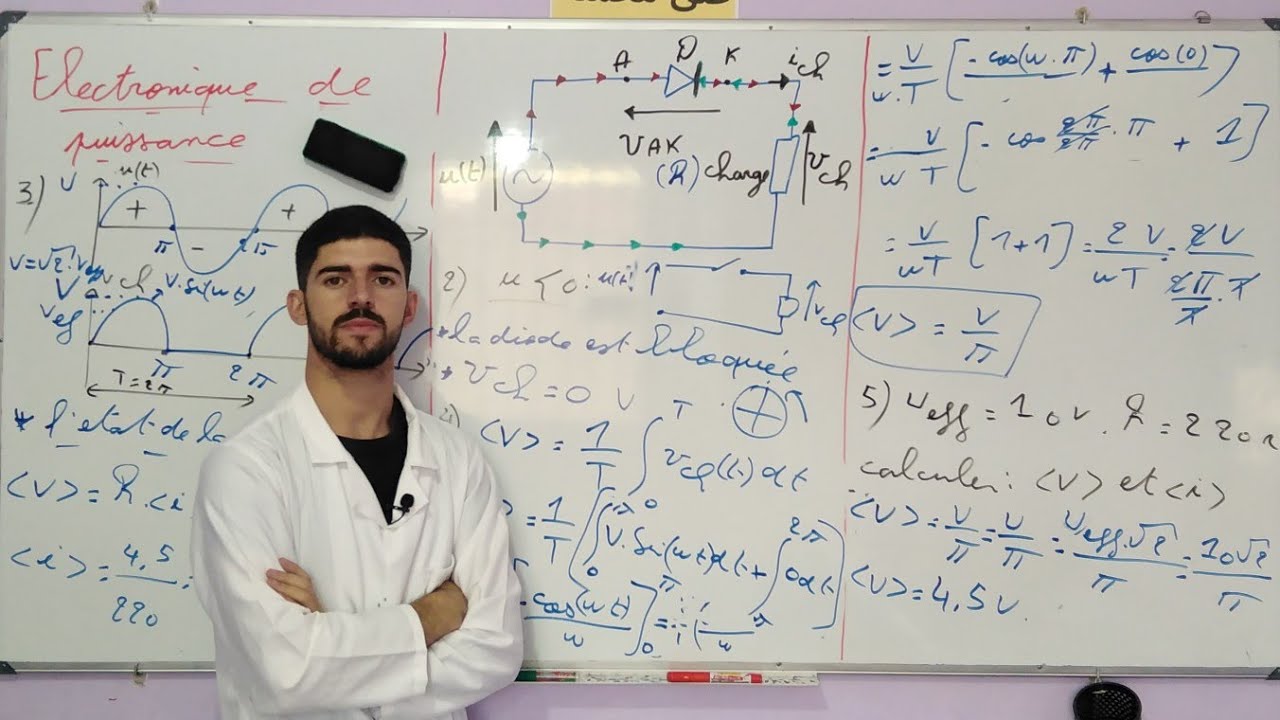 Electronique de
puissance
3)
V
u(t)
+
-
+
π
2π
V=√2.V
Vch
V
Veff
V.Sin(wt)
π
2π
T=2π
* l'etat de la
<V> = R.<i
<i> = 4,5/220 =
A
D
K
ich
VAK
u(t)
(R) charge
Vch
2) u < 0 : u(t)
Vch
* la diode est bloquée
* Vch = 0 V
4) <V> = 1/T ∫₀ᵀ vch(t) dt
= 1/T [∫₀^π V.Sin(wt)dt + ∫_π^2π 0dt]
-cos(wt)/w ]₀^π =
= V/w.T [-cos(w.π) + cos(0)]
= V/wT [-cos 2π/2π . π + 1]
= V/wT [1+1] = 2V/wT = 2V/(2π/T . T)
<V> = V/π
5) Ueff = 10V. R = 220Ω
calculer : <V> et <i>
<V> = V/π = V/π = Ueff.√2/π = 10√2/π
<V> = 4,5V